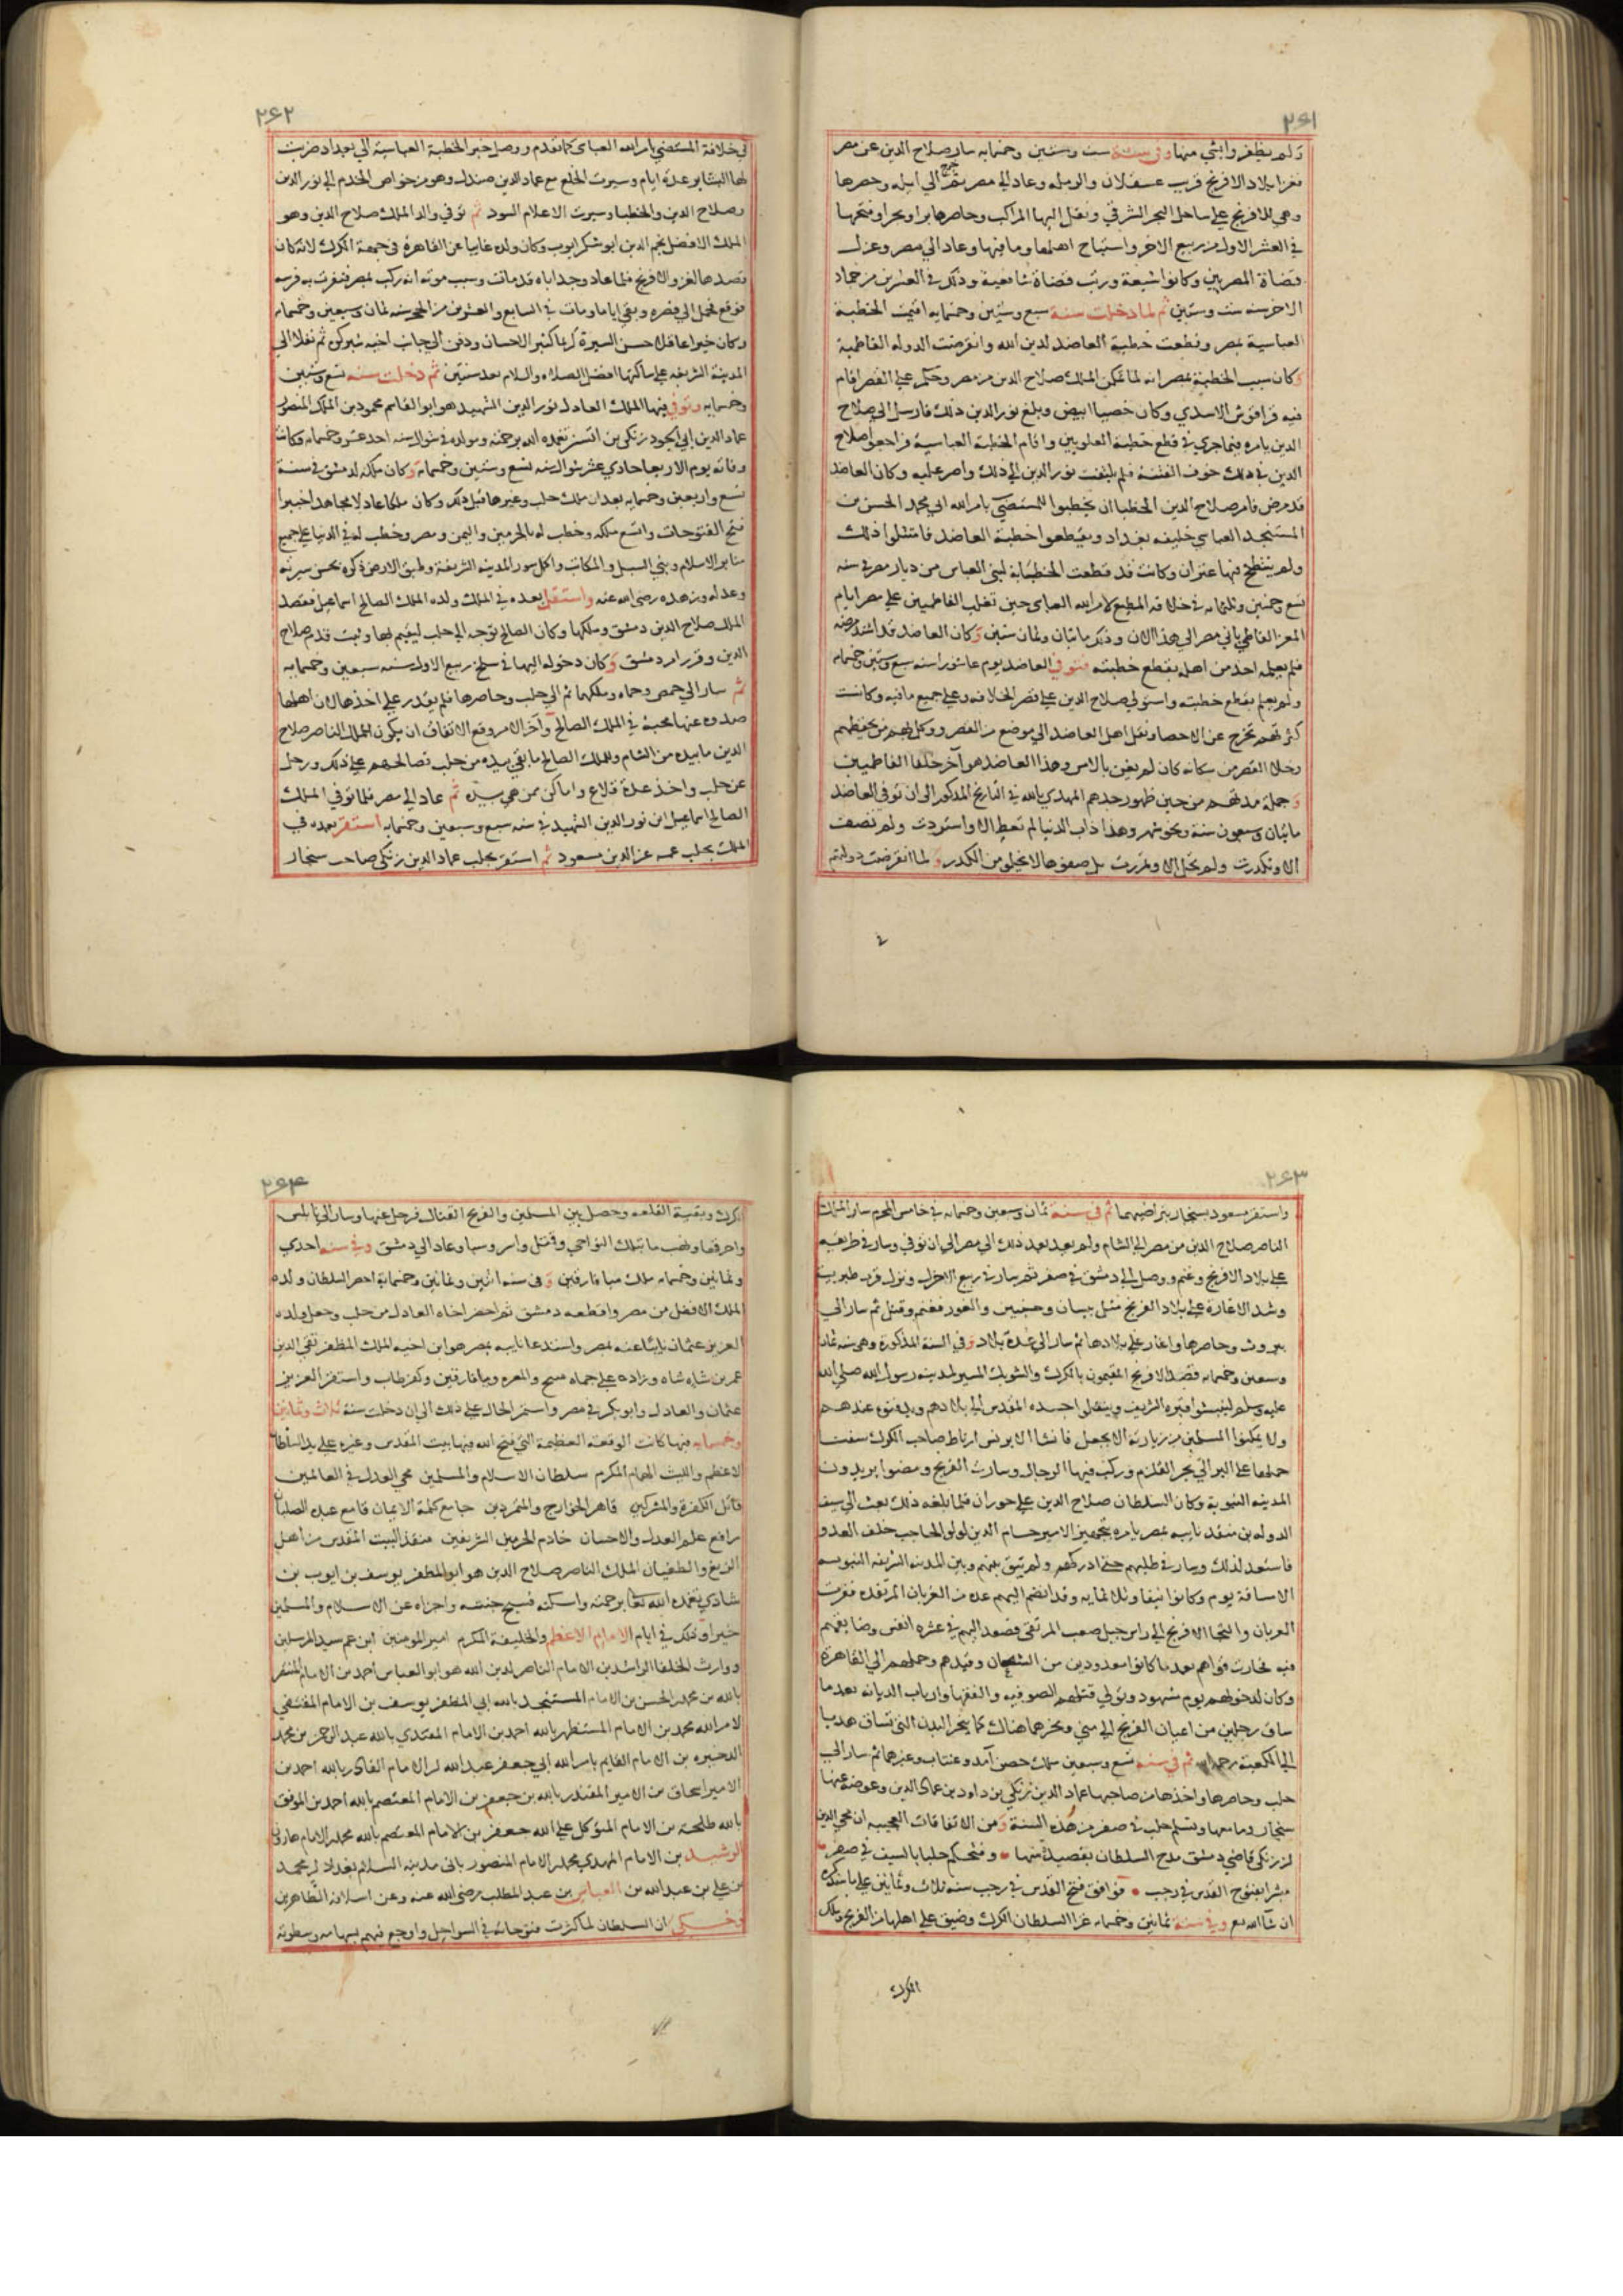 ٢٦١
ولم يظفروا بشي منها وفي سنة ست وستين وخمسمايه سار صلاح الدين عن مصر
فغزا بلاد الافرنج قرب عسقلان والرمله وعاد الي مصر ثم خرج الي ايله وحصرها
وهي للافرنج علي ساحل البحر الشرقي ونقل اليها المراكب وحاصرها برا وبحرا وفتحها
في العشر الاول من ربيع الاخر واستباح اهلها وما فيها وعاد الي مصر وعزل
قضاة المصريين وكانوا شيعة ورتب قضاة شافعية وذلك في العشرين من جماد
الاخر سنه ست وستين ثم لما دخلت سنة سبع وستين وخمسمايه اقيمت الخطبة
العباسية بمصر وقطعت خطبة العاضد لدين الله وانقرضت الدوله الفاطمية
وكان سبب الخطبة بمصر انه لما تمكن الملك صلاح الدين من مصر وحكم علي القصر اقام
فيه قراقوش الاسدي وكان خصيا ابيض وبلغ نور الدين ذلك فارسل الي صلاح
الدين يامره بقطع خطبة العلويين واقام الخطبة العباسية فراجعه صلاح
الدين في ذلك خوف الفتنة فلم يلتفت نور الدين الي ذلك واصر عليه وكان العاضد
قد مرض فامر صلاح الدين الخطبا ان يخطبوا للمستضي بامر الله ابي محمد الحسن بن
المستنجد العباسي خليفه بغداد ويقطعوا خطبة العاضد فامتثلوا ذلك
ولم ينتطح فيها عنزان وكانت قد قطعت الخطبة لبني العباس من ديار مصر في سنه
تسع وخمسين وثلثمايه في خلافه المطيع لامر الله العباسي حين تغلب الفاطميين علي مصر ايام
المعز الفاطمي باني مصر الي هذا الان وذلك مائتان وثمان سنين وكان العاضد قد اشتد مرضه
فلم يعلمه احد من اهله بقطع خطبته فتوفي العاضد يوم عاشورا سنه سبع وستين وخمسمايه
ولم يعلم بقطع خطبته واستولي صلاح الدين علي قصر الخلافه وعلي جميع ما فيه وكانت
كثرتهم تخرج عن الاحصا ونقل اهل العاضد الي موضع من القصر ووكل بهم من يحفظهم
وخلا القصر من سكانه كان لم يغن بالامس وهذا العاضد هو آخر خلفا الفاطميين
وجملة مدتهم من حين ظهور جدهم المهدي بالله في التاريخ المذكور الي ان توفي العاضد
مائتان وسبعون سنة ونحو شهر وهذا داب الدنيا لم تعط الا واستردت ولم تصف
الا وتكدرت ولم تحل الا وتمررت بل صفوها لا يخلو من الكدر ولما انقرضت دولتهم
٢٦٢
في خلافة المستضي بامر الله العباسي كما تقدم ووصل خبر الخطبة العباسية الي بغداد ضربت
لها البشاير عدة ايام وسيرت الخلع مع عماد الدين صندل وهو من خواص الخدم الي نور الدين
وصلاح الدين والخطبا وسيرت الاعلام السود ثم توفي والد الملك صلاح الدين وهو
الملك الافضل نجم الدين ابو شكر ايوب وكان ولده غايبا عن القاهرة في جهة الكرك لانه كان
قصدها لغزو الافرنج فلما عاد وجد اباه قد مات وسبب موته انه ركب بمصر فنفرت به فرسه
فوقع فحمل الي قصره وبقي اياما ومات في السابع والعشرين من الحجه سنه ثمان وسبعين وخمسمايه
وكان خيرا عاقلا حسن السيرة كريما كثير الاحسان ودفن الي جانب اخيه شيركوه ثم نقلا الي
المدينه الشريفه علي ساكنها افضل الصلاه والسلام بعد سنتين ثم دخلت سنه تسع وستين
وخمسمايه وتوفي فيها الملك العادل نور الدين الشهيد هو ابو القاسم محمود بن الملك المنصور
عماد الدين ابي الجود زنكي بن اقسنقر تغمده الله برحمته ومولده في شوال سنه احد عشر وخمسمايه وكانت
وفاته يوم الاربعا حادي عشر شوال سنه تسع وستين وخمسمايه وكان ملكه لدمشق في سنة
تسع واربعين وخمسمايه بعد ان ملك حلب وغيرها قبل ذلك وكان ملكا عادلا مجاهدا خبيرا
فتح الفتوحات واتسع ملكه وخطب له بالحرمين واليمن ومصر وخطب له في الدنيا علي جميع
منابر الاسلام وبني السبل والمكاتب واكمل سور المدينه الشريفة وطبق الارض ذكره بحسن سيرته
وعدله وزهده رضي الله عنه واستقل بعده في الملك ولده الملك الصالح اسماعيل فقصد
الملك صلاح الدين دمشق وملكها وكان الصالح توجه الي حلب ليقيم بها وثبت قدم صلاح
الدين وقرر امر دمشق وكان دخوله اليها في سلخ ربيع الاول سنه سبعين وخمسمايه
ثم سار الي حمص وحماه وملكهما ثم الي حلب وحاصرها فلم يقدر علي اخذها لان اهلها
صدوه عنها محبة في الملك الصالح وآخر الامر وقع الاتفاق ان يكون للملك الناصر صلاح
الدين ما بيده من الشام وللملك الصالح ما بقي بيده من حلب فصالحهم علي ذلك ورحل
عن حلب واخذ عدة قلاع واماكن ممن هي بيده ثم عاد الي مصر فلما توفي الملك
الصالح اسماعيل ابن نور الدين الشهيد في سنه سبع وسبعين وخمسمايه استقر بعده في
الملك بحلب عمه عز الدين مسعود ثم استقر بحلب عماد الدين زنكي صاحب سنجار
٢٦٣
واستقر مسعود بسنجار بتراضيهما ثم في سنة ثمان وسبعين وخمسمايه في خامس المحرم سار الملك
الناصر صلاح الدين من مصر الي الشام ولم يعد بعد ذلك الي مصر الي ان توفي وسار في طريقه
علي بلاد الافرنج وغنم ووصل الي دمشق في صفر ثم سار في ربيع الاول ونزل قرب طبرية
وشد الاغارة علي بلاد الفرنج مثل بيسان وجينين والغور فغنم وقتل ثم سار الي
بيروت وحاصرها واغار علي بلادها ثم سار الي عدة بلاد وفي السنة المذكورة وهي سنه ثمان
وسبعين وخمسمايه قصد الافرنج المقيمون بالكرك والشوبك المسير لمدينه رسول الله صلي الله
عليه وسلم لينبشوا قبره الشريف وينقلوا جسده المقدس الي بلادهم ويدفنوه عندهم
ولا يمكنوا المسلمين من زيارته الا بجعل فانشا الابرنس ارناط صاحب الكرك سفنا
حملها علي البر الي بحر القلزم وركب فيها الرجال وسارت الفرنج ومضوا يريدون
المدينه النبوية وكان السلطان صلاح الدين علي حوران فلما بلغه ذلك بعث الي سيف
الدوله بن منقذ نايبه بمصر يامره بتجهيز الامير حسام الدين لولو الحاجب خلف العدو
فاستعد لذلك وسار في طلبهم حتي ادركهم ولم يبق بينهم وبين المدينه الشريفه النبويه
الا مسافة يوم وكانوا نيفا وثلاثمايه وقد انضم اليهم عدة من العربان المرتده ففرت
العربان والتجا الافرنج الي راس جبل صعب المرتقي فصعد اليهم في عشره انفس وضايقهم
فيه فخارت قواهم بعد ما كانوا معدودين من الشجعان وقيدهم وحملهم الي القاهرة
وكان لدخولهم يوم مشهود وتولي قتلهم الصوفيه والفقها وارباب الديانه بعد ما
ساق رجلين من اعيان الفرنج الي مني ونحرهما هناك كما ينحر البدن التي تساق هديا
الي الكعبة ثم في سنه تسع وسبعين ملك حصن آمد وعنتاب وغيرهما ثم سار الي
حلب وحاصرها واخذها من صاحبها عماد الدين زنكي بن داود بن عماد الدين وعوضه عنها
سنجار وما معها وتسلم حلب في صفر من هذه السنة ومن الاتفاقات العجيبه ان محي الدين
بن زنكي قاضي دمشق مدح السلطان بقصيدة منها وفتحكم حلبا بالسيف في صفر
مبشرا بفتوح القدس في رجب فوافق فتح القدس في رجب سنه ثلاث وثمانين علي ما سنذكره
ان شا الله تع وفي سنة ثمانين وخمسمايه غزا السلطان الكرك وضيق علي اهلها من الفرنج وملك
الكرك
٢٦٤
الكرك وبقية القلعه وحصل بين المسلمين والفرنج القتال فرحل عنها وسار الي نابلس
واحرقها ونهب ما بتلك النواحي وقتل واسر وسبا وعاد الي دمشق وفي سنه احدي
وثمانين وخمسمايه ملك ميا فارقين وفي سنه اثنين وثمانين وخمسماية احضر السلطان ولده
الملك الافضل من مصر واقطعه دمشق ثم احضر اخاه العادل من حلب وجعل ولده
العزيز عثمان نايبا عنه بمصر واستدعا نايبه بمصر هو ابن اخيه الملك المظفر تقي الدين
عمر بن شاه شاه وزاده علي حماه منبج والمعره وميافارقين وكفرطاب واستقر العزيز
عثمان والعادل وابو بكر في مصر واستمر الحال علي ذلك الي ان دخلت سنة ثلاث وثمانين
وخمسمايه فيها كانت الوقعة العظيمة التي فتح الله فيها بيت المقدس وغيره علي يد السلطان
الاعظم والليث الهمام المكرم سلطان الاسلام والمسلمين محي العدل في العالمين
قاتل الكفرة والمشركين قاهر الخوارج والمتمردين جامع كلمة الايمان قامع عبده الصلبان
رافع علم العدل والاحسان خادم الحرمين الشريفين منقذ البيت المقدس من اهل
الزيغ والطغيان الملك الناصر صلاح الدين هو ابو المظفر يوسف بن ايوب بن
شادي تغمده الله تعا برحمته واسكنه فسيح جنته واجزاه عن الاسلام والمسلمين
خيرا وذلك في ايام الامام الاعظم والخليفة المكرم امير المومنين ابن عم سيد المرسلين
ووارث الخلفا الراشدين الامام الناصر لدين الله هو ابو العباس احمد بن الامام المستضي
بالله بن محمد الحسن بن الامام المستنجد بالله ابي المظفر يوسف بن الامام المقتفي
لامر الله محمد بن الامام المستظهر بالله احمد بن الامام المقتدي بالله عبد الرحمن بن محمد
الدخيره بن الامام القايم بامر الله ابي جعفر عبد الله بن الامام القادر بالله احمد بن
الامير اسحاق بن الامير المقتدر بالله بن جعفر بن الامام المعتصم بالله احمد بن الموفق
بالله طلحة بن الامام المتوكل علي الله جعفر بن الامام المعتصم بالله محمد بن الامام هارون
الرشيد بن الامام المهدي محمد بن الامام المنصور باني مدينه السلام بغداد بن محمد
بن علي بن عبد الله بن العباس بن عبد المطلب رضي الله عنه وعن اسلافه الطاهرين
وحكي ان السلطان لما كثرت فتوحاته في السواحل واوجع فيهم بسهامه وسطوته